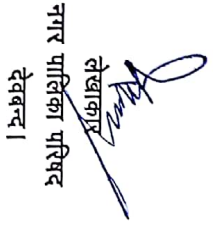 लेखाकार
नगर पालिका परिषद
देवबन्द।